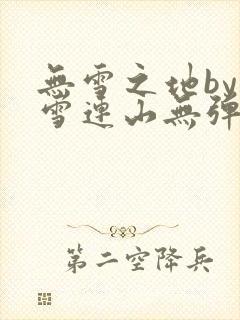 無雪之地by
雪連山無彈
第二空降兵